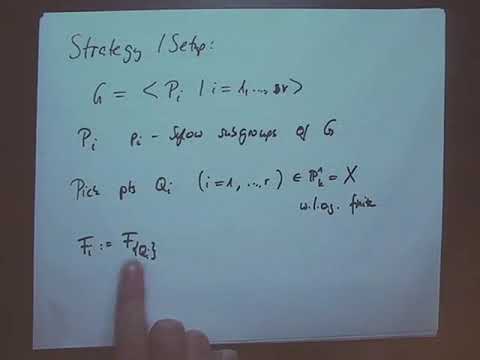 Strategy / Setup:
G = < P_i | i = 1, ..., r >
P_i p_i - Sylow subgroups of G
Pick pts Q_i (i = 1, ..., r) ∈ ℙ^1_k = X
w.l.o.g. finite
F_i := F_{Q_i}